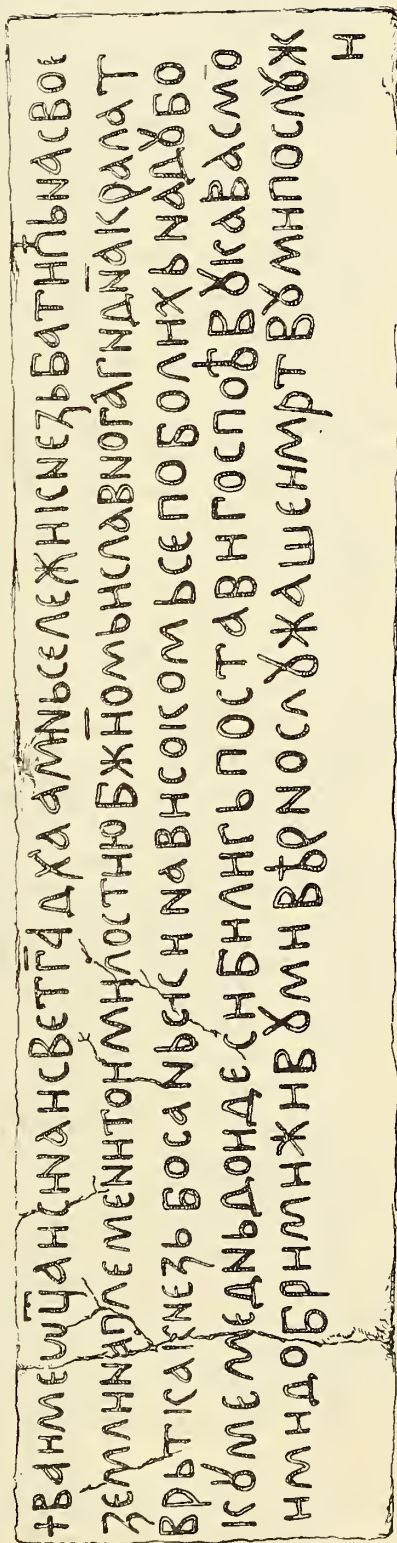 +ваимеѡц҃аисн҃аисветг҃адх҃аамньсележикнезьбатиꙉьнасвое
ꙁемлинаплеменитоимилостиюбж҃иомьиславногагнд҃накралат
врьткакнезьбосаньскинависокомьсепоболихьнадꙋбо
кꙋмемедньдоидесибилигьпоставигоспоꙉвꙋкавасмо
имидобримииживꙋмивѣрнослꙋжашеимртвꙋмипослꙋж
и